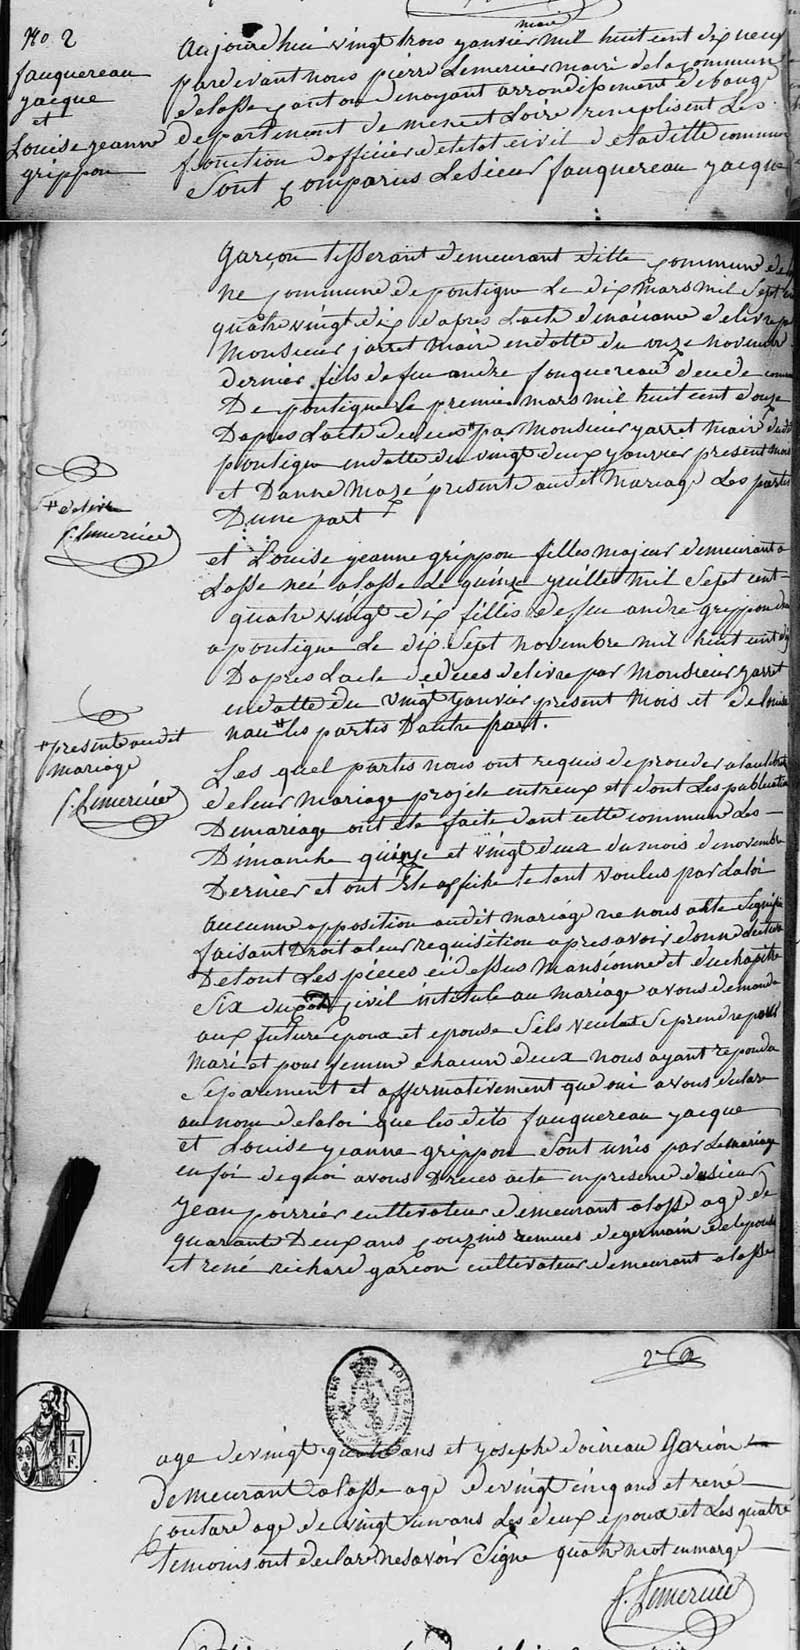 No 2
fauquereau
yacque
et
Louise yeanne
grippon
maire
Aujourd hui vingt trois yanvier mil huit cent dix neuf
pardevant nous pierre Lemercier maire de la commune
delasse canton denoyant arrondisement debauge
departement de mene et Loire remplisent Les
fonction dofficier detatat civil de laditte commune
Sont comparus Lesieur fauquereau yacque
garçon tisserant demeurant ditte commune de
ne commune de pontigne Le dix mars mil sept cent
quatre vingt dix dapres Lacte denaisance delivre par
Monsieur jarret maire endatte du onze novembre
dernier fils de feu andre fouquereau decede commune
De pontigne Le premier mars mil huit cent douze
Dapres Lacte deces # par Monsieur yarret maire dudit
pontigne endatte du vingt deux yanvier present mois
et Danne Mazé presente audit mariage Les parties
Dune part
# delivre
P. Lemercier
et Louise yeanne grippon filles majeur demeurant a
Lasse neé alasse Le quinze yuillet mil sept cent
quatre vingt dix fillis de feu andre grippon
apontigne Le dix sept novembre mil huit cent dix
Dapres Lacte dedeces delivre par Monsieur yarret
endatte du vingt yanvier present mois et de louise
nau # les parties Dautre part.
# presente audit
mariage
P. Lemercier
Les quel parties nous ont requis de proceder a la celebration
de leur mariage projete entreux et dont Les publication
Demariage ont ete faite dant cette commune Les
Dimanche quinze et vingt deux du mois denovembre
Dernier et ont Ete affiche le tant voulus par Laloi
aucunne opposition audit mariage ne nous aete Signifie
faisant Droit aleur requisition apres avoir donne lecture
Detout Les pieces cidessus mansionne et duchapitre
Six du code civil intitule au mariage avous demande
aux future epoux et epouse Sils veulent se prendre pour
mari et pour femme chacun deux nous ayant repondu
separement et affirmativement que oui avous declare
au nom delaloi que les dits fauquereau yacque
et Louise yeanne grippon Sont unis par Lemariage
enfoi dequoi avous Dreces acte enpresence desieur
yean poirrier cultivateur demeurant alasse age de
quarante Deux ans couzins remues degermain delepouse
et rené richard garcon cultivateur demeurant alasse
2 e
1
F.
age devingt quatre ans et yoseph doineau Garcon
demeurant alasse age devingt cinq ans et rené
coutard age de vingt unans Les deux epoux et Les quatre
temoins ont declare nesavoir Signe quatre mot en marge
P. Lemercier